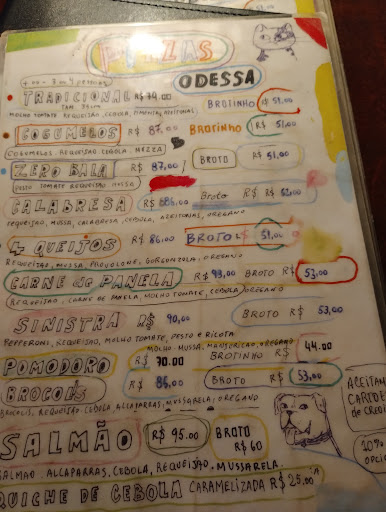 PIZZAS
ODESSA
TRADICIONAL R$ 70.00 BROTINHO R$ 51,00
MOLHO TOMATE, REQUEIJÃO, CEBOLA, PIMENTÃO, AZEITONAS
COGUMELOS R$ 87,00 BROTINHO R$ 51,00
COGUMELOS, REQUEIJÃO, CEBOLA, MUZZA
ZERO BALA R$ 87,00 BROTO R$ 51,00
PESTO TOMATE REQUEIJÃO MUSSA
CALABRESA R$ Broto R$
REQUEIJÃO, MUSSA, CALABRESA, CEBOLA, AZEITONAS, OREGANO
4 QUEIJOS R$ 86,00 BROTO R$ 51,00
REQUEIJÃO, MUSSA, PROVOLONE, GORGONZOLA, OREGANO
CARNE DE PANELA R$ 93,00 BROTO R$ 53,00
REQUEIJÃO, CARNE DE PANELA, MOLHO TOMATE, CEBOLA, OREGANO
SINISTRA R$ 90,00 BROTO R$ 53,00
PEPPERONI, REQUEIJÃO, MOLHO TOMATE, PESTO E RICOTA
MOLHO, MUSSA, MANJERICÃO, OREGANO
POMODORO R$ 70.00 BROTINHO R$ 44.00
BROCOLIS R$ 86,00 BROTO R$ 53,00
BROCOLIS, REQUEIJÃO, CEBOLA, ALCAPARRAS, MUSSARELA, OREGANO
SALMÃO R$ 95.00 BROTO R$ 60
SALMÃO, ALCAPARRAS, CEBOLA, REQUEIJÃO, MUSSARELA
QUICHE DE CEBOLA CARAMELIZADA R$ 25.00
ACEITAM
DE CRED
10%
OPCI